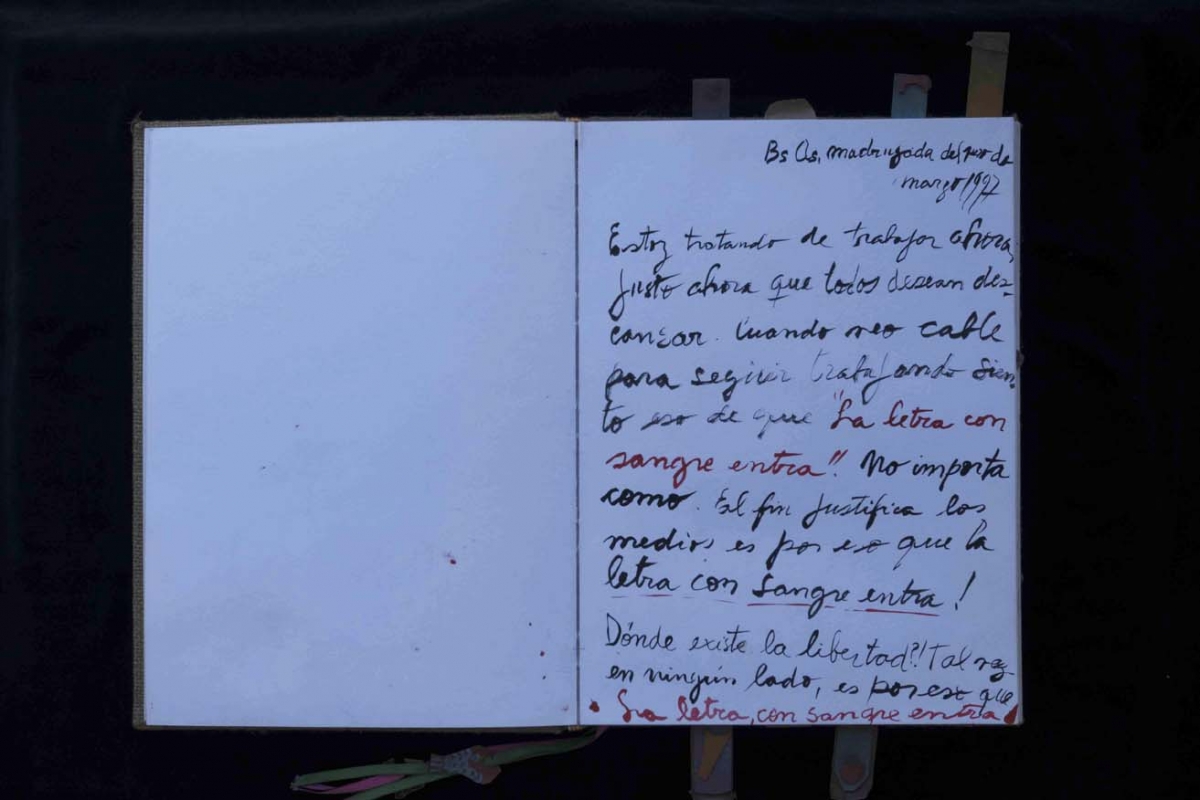 Bs As, madrugada del 1ero de
marzo 1997
Estoy tratando de trabajar ahora,
justo ahora que todos desean des-
canzar. Cuando veo cable
para seguir trabajando sien-
to eso de que "La letra con
sangre entra". No importa
como. El fin justifica los
medios es por eso que la
letra con sangre entra!
Dónde existe la libertad?! Tal vez
en ningún lado, es por eso que
La letra, con sangre entra